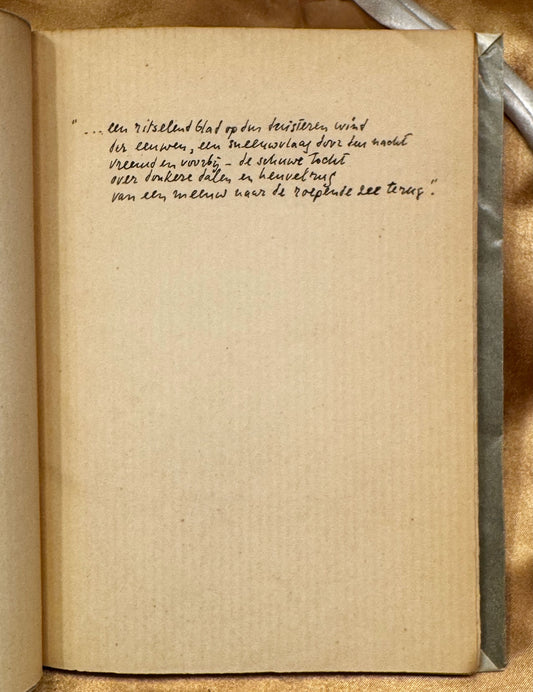 "... een ritselend blad op den duisteren wind
der eeuwen, een sneeuwvlaag door den nacht
vreemd en voorbij – de schuwe tocht
over donkere dalen en heuvelrug
van een meeuw naar de roepende zee terug".